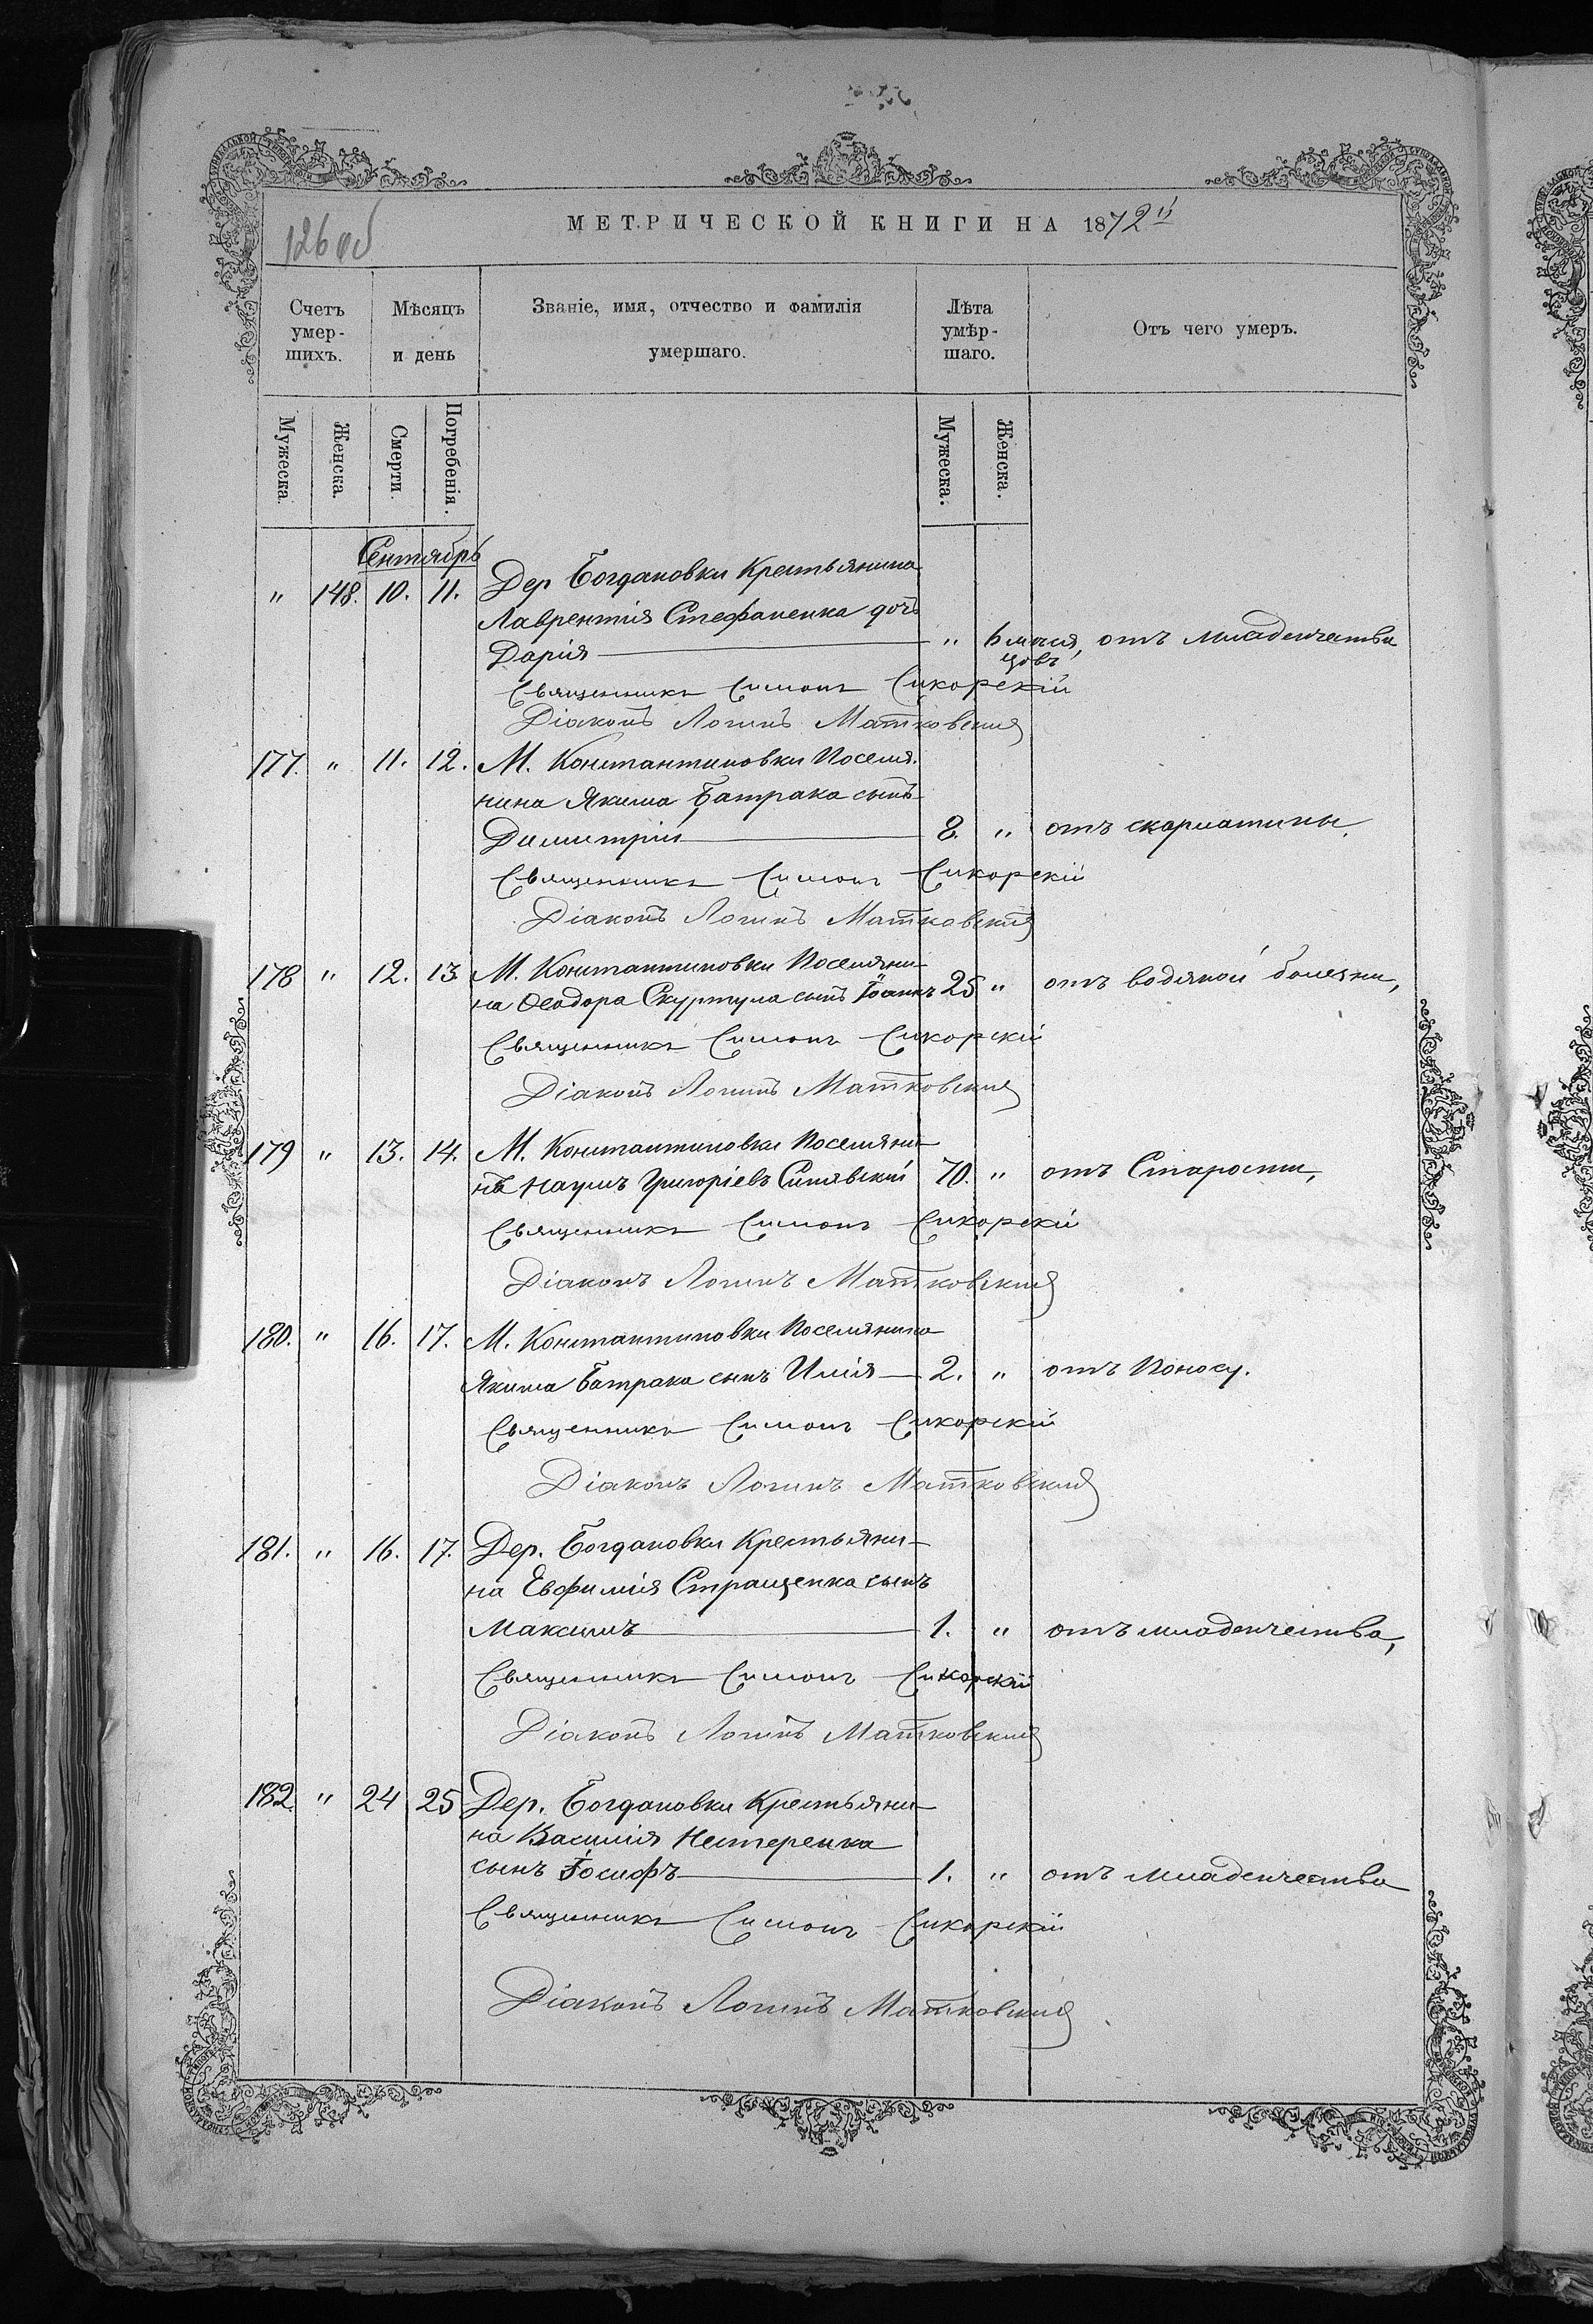 МЕТРИЧЕСКОЙ КНИГИ НА 1872й
126 об
Счетъ умер-шихъ.
Мѣсяцъ и день
Званіе, имя, отчество и фамилія умершаго.
Лѣта умѣр-шаго.
Отъ чего умеръ.
Мужеска.
Женска.
Смерти.
Погребенія.
Мужеска.
Женска.
Сентябрь
" 148. 10. 11. Дер Богдановки Крестьянина
Лаврентія Стефаненка дочь
Дарія " 6 мѣся, отъ младенчества
цовъ
Священникъ Симонъ Сикорскій
Діаконъ Логинъ Матковскій
177. " 11. 12. М. Константиновки Поселя-
нина Якима Батрака сынъ
Димитрій 8. " отъ скарлатины.
Священникъ Симонъ Сикорскій
Діаконъ Логинъ Матковскій
178 " 12. 13 М. Константиновки Поселяни-
на Ѳеодора Скуртула сынъ Іоаннъ 25 " отъ водяной болезни,
Священникъ Симонъ Сикорскій
Діаконъ Логинъ Матковскій
179 " 13. 14. М. Константиновки Поселяни-
нъ Наумъ Григоріевъ Синявскій 70. " отъ Старости,
Священникъ Симонъ Сикорскій
Діаконъ Логинъ Матковскій
180. " 16. 17. М. Константиновки Поселянина
Якима Батрака сынъ Илія 2. " отъ Поносу.
Священникъ Симонъ Сикорскій
Діаконъ Логинъ Матковскій
181. " 16. 17. Дер. Богдановки Крестьяни-
на Евфимія Стращенка сынъ
Максимъ 1. " отъ младенчества,
Священникъ Симонъ Сикорскій
Діаконъ Логинъ Матковскій
182. " 24 25 Дер. Богдановки Крестьяни-
на Василія Нестеренка
сынъ Іосифъ 1. " отъ младенчества
Священникъ Симонъ Сикорскій
Діаконъ Логинъ Матковскій